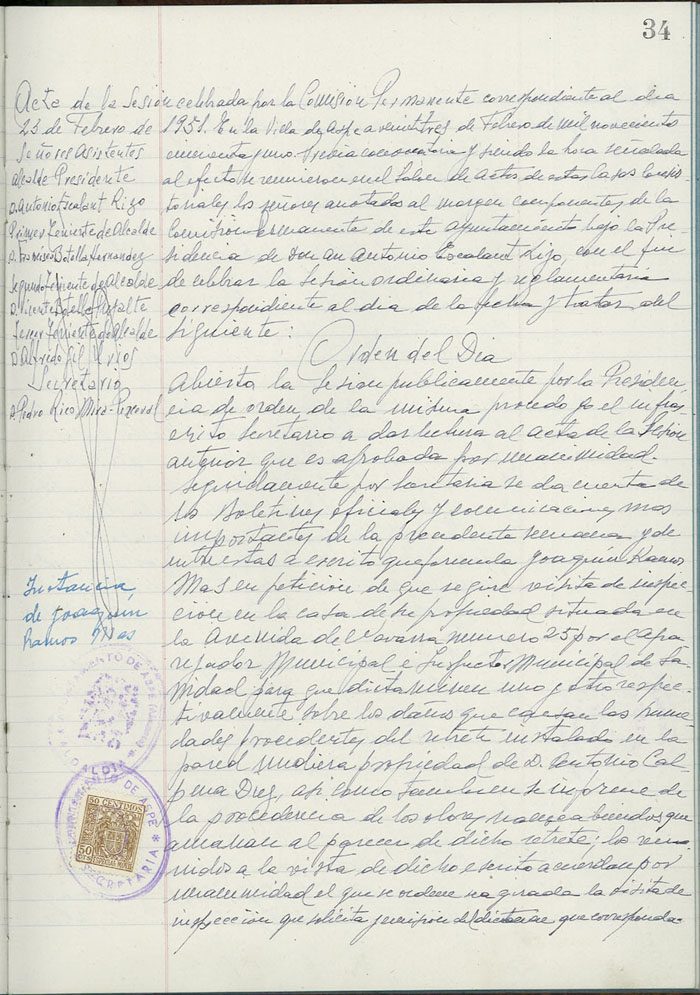 34
Acta de la Sesión celebrada por la Comisión Permanente correspondiente al dia
23 de Febrero de 1951. En la Villa de Aspe a veintitres de Febrero de mil novecientos
Señores Asistentes
Alcalde Presidente
D. Antonio Escalant Rizo
Primer Teniente de Alcalde
D. Francisco Botella Hernandez
Segundo Teniente de Alcalde
D. Vicente Botella
Tercer Teniente de Alcalde
D. Alfredo Gil
Secretario
D. Pedro Rico Mira-Perceval
cincuenta y uno. Previa convocatoria y siendo la hora señalada
al efecto se reunieron en el Salon de Actos de estas Casas Consis-
toriales los señores anotados al margen componentes de la
Comisión Permanente de este Ayuntamiento bajo la Pre-
sidencia de Don Antonio Escalant Rizo, con el fin
de celebrar la Sesión ordinaria y reglamentaria
correspondiente al dia de la fecha y tratar del
siguiente:
Orden del Dia
Abierta la Sesion publicamente por la Presiden-
cia de orden de la misma procedo yo el infras-
crito Secretario a dar lectura al acta de la Sesion
anterior que es aprobada por unanimidad.
Seguidamente por Secretaria se da cuenta de
los Boletines oficiales y comunicaciones mas
importantes de la precedente semana y de
a escrito que formula Joaquín Ramos
Mas en petición de que se gire visita de inspec-
ción en la casa de su propiedad situada en
la Avenida de Navarra numero 25 por el Apa-
rejador Municipal e Inspector Municipal de Sa-
nidad para que dictaminen uno y otro respec-
tivamente sobre los daños que causan las hume-
dades procedentes del retrete instalado en la
pared medianera propiedad de D. Antonio Cal-
pena Diez, asi como tambien se informe de
la procedencia de los olores nauseabundos que
emanan al parecer de dicho retrete; los reu-
nidos a la vista de dicho escrito acuerdan por
unanimidad el que se ordene sea girada la visita de
inspección que solicita y emision del dictamen que corresponda.
Instancia
de Joaquin
Ramos Mas
AYUNTAMIENTO DE ASPE
ALCALDIA
AYUNTAMIENTO DE ASPE
SECRETARIA
50 CENTIMOS
50